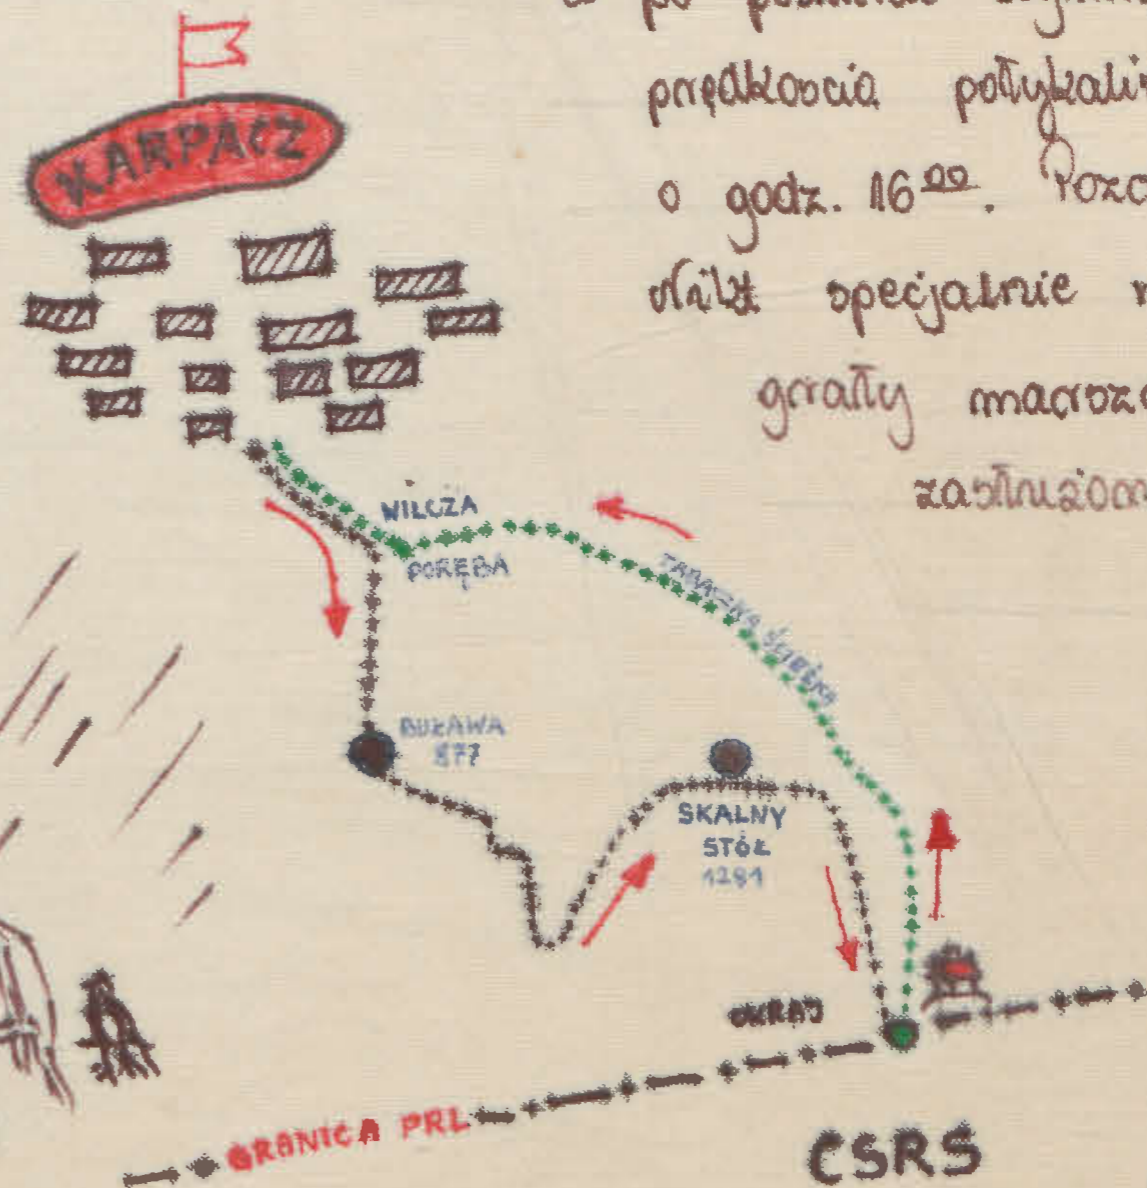 a po
prędkością połykaliś
o godz. 16⁰⁰. Pozo
specjalnie
grały maszo
KARPACZ
WILCZA
PORĘBA
TABACZNA ŚCIEŻKA
BUŁAWA
877
SKALNY
STÓŁ
1281
OKRAJ
GRANICA PRL
CSRS